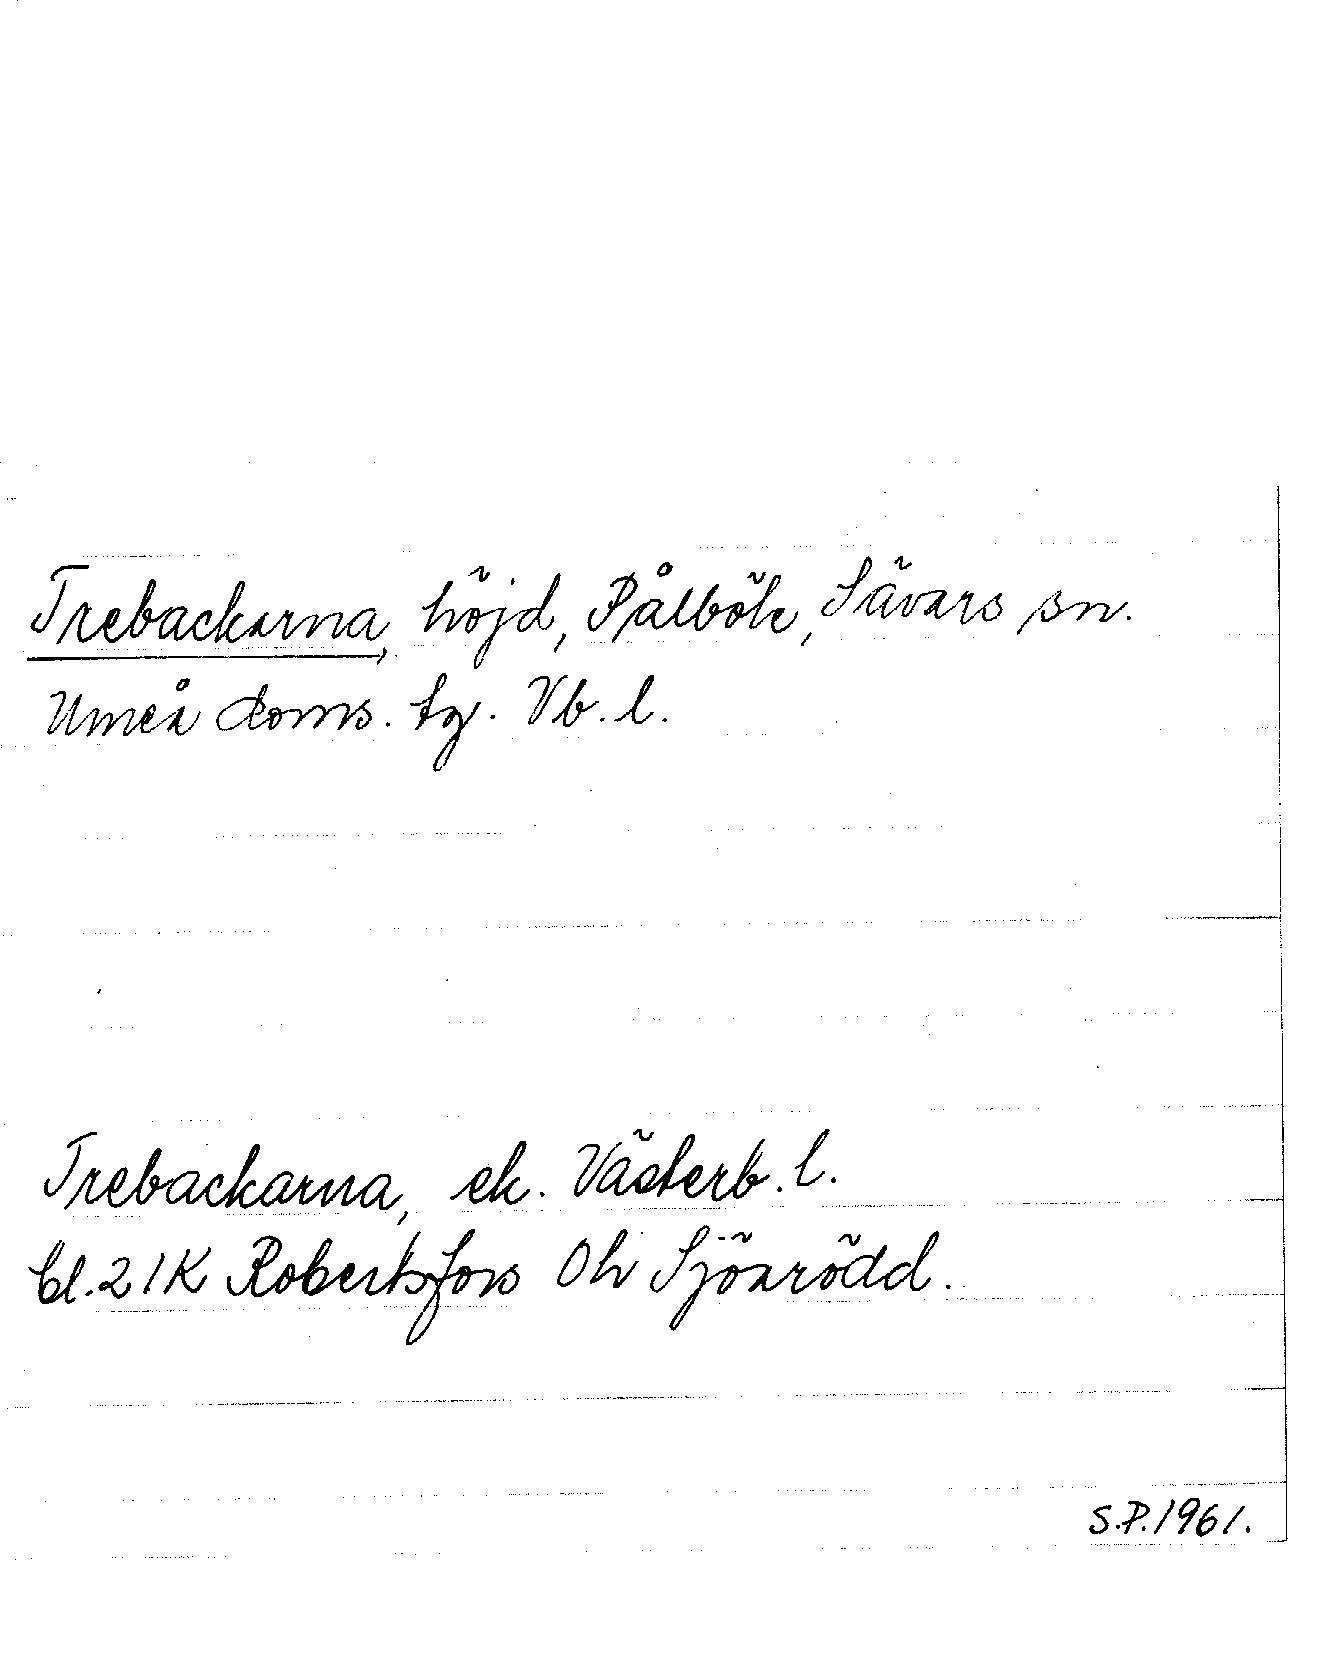 Trebackarna, höjd, Pålböle, Sävars sn.
Umeå doms. tg. Vb. l.
Trebackarna, ek. Västerb. l.
bl. 21K Robertsfors Oh Sjöarödd.
S.P. 1961.